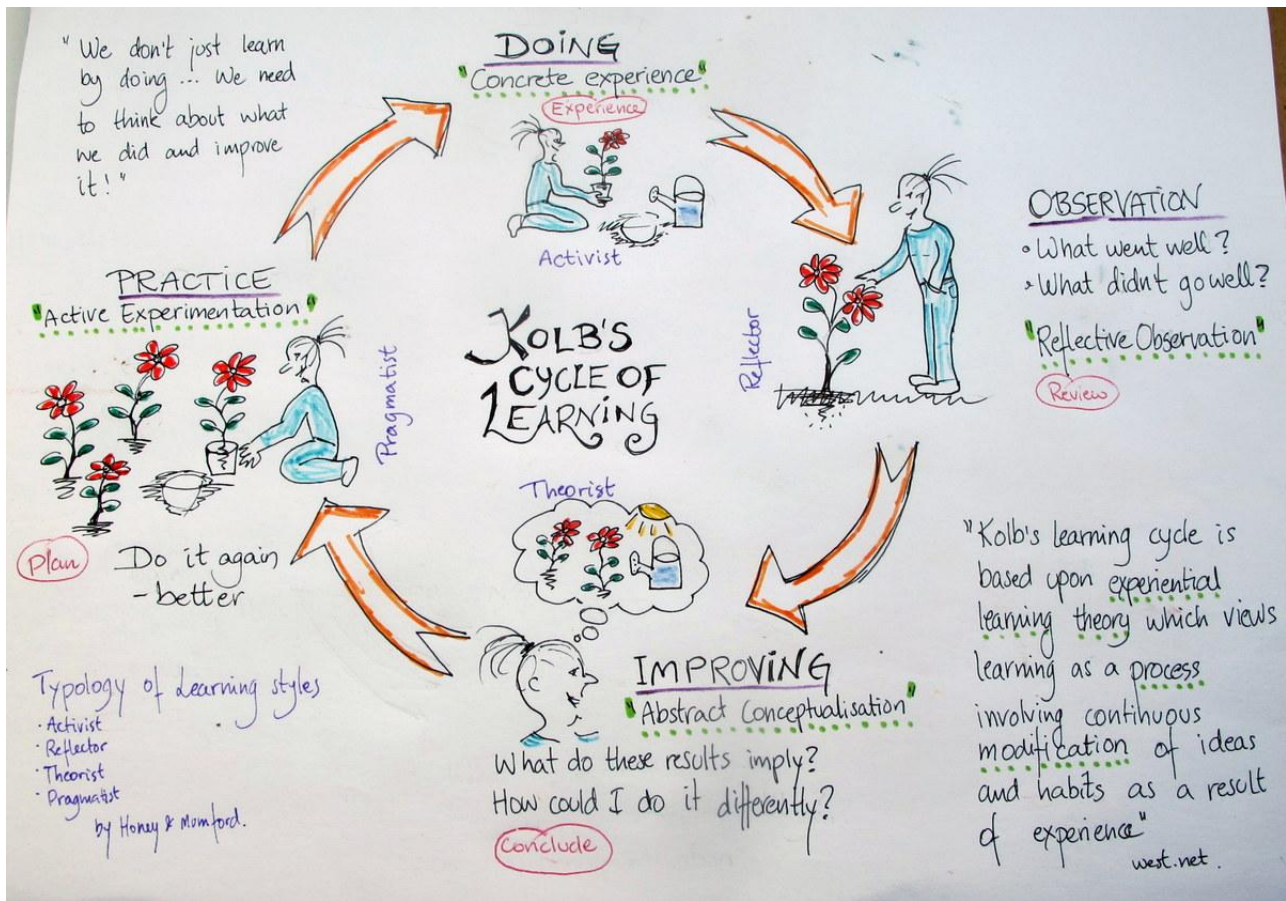 "We don't just learn
by doing ... We need
to think about what
we did and improve
it!"
DOING
"Concrete experience"
Experience
Activist
OBSERVATION
• What went well?
• What didn't go well?
"Reflective Observation"
Review
Reflector
PRACTICE
"Active Experimentation"
Pragmatist
Plan
Do it again
- better
KOLB'S
CYCLE OF
LEARNING
Theorist
IMPROVING
"Abstract Conceptualisation"
What do these results imply?
How could I do it differently?
Conclude
Typology of Learning styles
• Activist
• Reflector
• Theorist
• Pragmatist
by Honey & Mumford.
"Kolb's learning cycle is
based upon experiential
learning theory which views
learning as a process
involving continuous
modification of ideas
and habits as a result
of experience"
west.net.